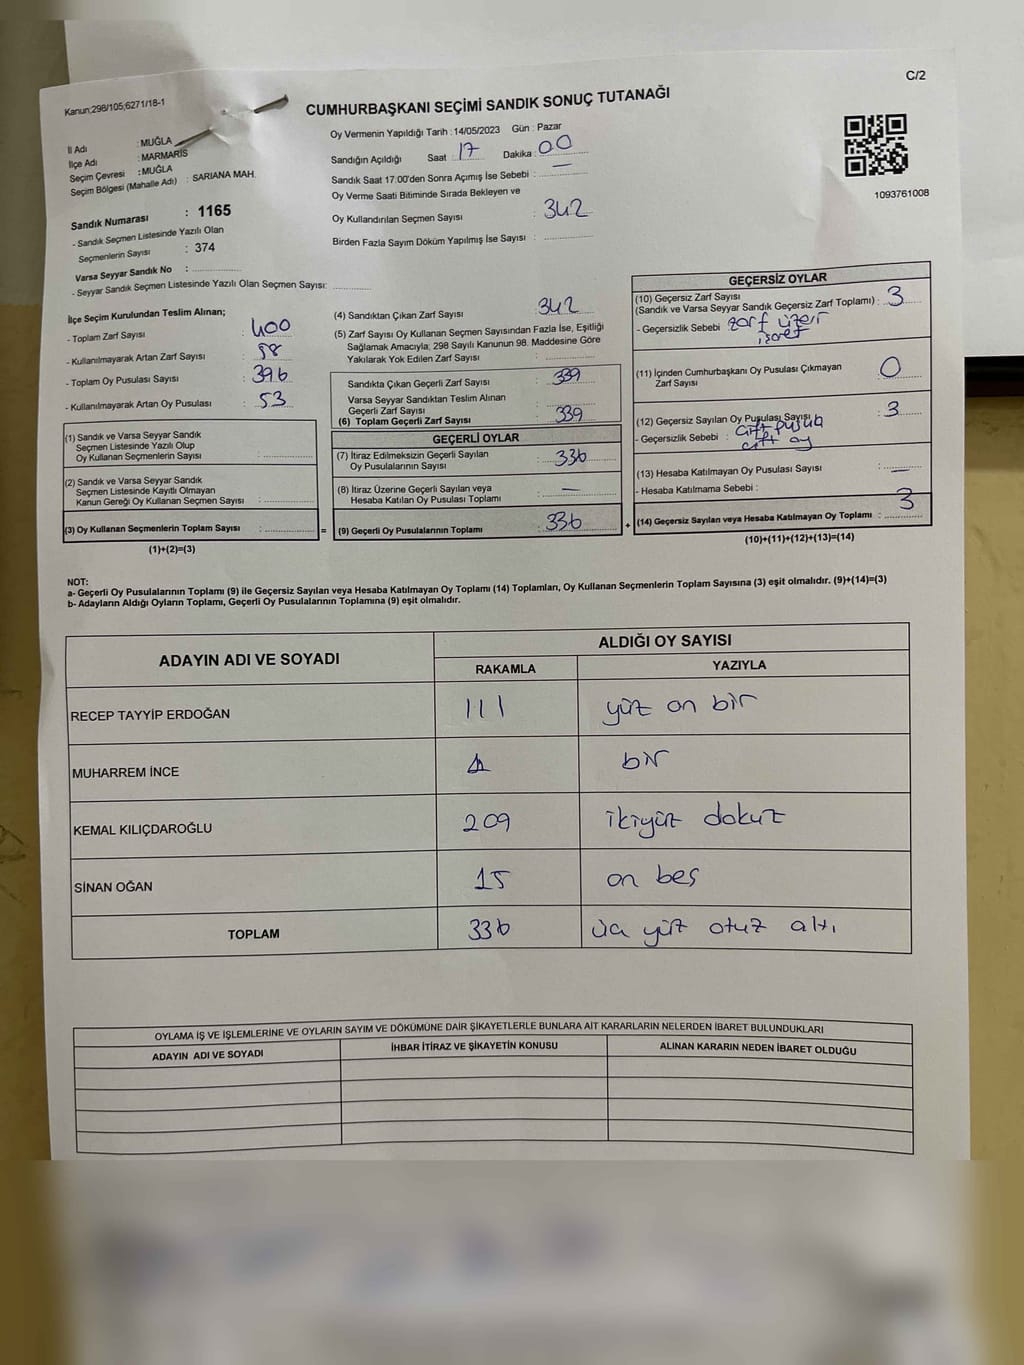 C/2
Kanun;298/105;6271/18-1
CUMHURBAŞKANI SEÇİMİ SANDIK SONUÇ TUTANAĞI
İl Adı : MUĞLA
İlçe Adı : MARMARİS
Seçim Çevresi : MUĞLA
Seçim Bölgesi (Mahalle Adı) : SARIANA MAH.
Sandık Numarası : 1165
- Sandık Seçmen Listesinde Yazılı Olan
Seçmenlerin Sayısı : 374
Varsa Seyyar Sandık No :
- Seyyar Sandık Seçmen Listesinde Yazılı Olan Seçmen Sayısı:
Oy Vermenin Yapıldığı Tarih : 14/05/2023 Gün : Pazar
Sandığın Açıldığı Saat : 17 Dakika : 00
Sandık Saat 17.00'den Sonra Açımış İse Sebebi : —
Oy Verme Saati Bitiminde Sırada Bekleyen ve
Oy Kullandırılan Seçmen Sayısı : 342
Birden Fazla Sayım Döküm Yapılmış İse Sayısı :
1093761008
İlçe Seçim Kurulundan Teslim Alınan;
- Toplam Zarf Sayısı : 400
- Kullanılmayarak Artan Zarf Sayısı : 58
- Toplam Oy Pusulası Sayısı : 396
- Kullanılmayarak Artan Oy Pusulası : 53
(1) Sandık ve Varsa Seyyar Sandık
Seçmen Listesinde Yazılı Olup
Oy Kullanan Seçmenlerin Sayısı :
(2) Sandık ve Varsa Seyyar Sandık
Seçmen Listesinde Kayıtlı Olmayan
Kanun Gereği Oy Kullanan Seçmen Sayısı :
(3) Oy Kullanan Seçmenlerin Toplam Sayısı :
(1)+(2)=(3)
(4) Sandıktan Çıkan Zarf Sayısı : 342
(5) Zarf Sayısı Oy Kullanan Seçmen Sayısından Fazla İse, Eşitliği
Sağlamak Amacıyla; 298 Sayılı Kanunun 98. Maddesine Göre
Yakılarak Yok Edilen Zarf Sayısı :
Sandıkta Çıkan Geçerli Zarf Sayısı : 339
Varsa Seyyar Sandıktan Teslim Alınan
Geçerli Zarf Sayısı :
(6) Toplam Geçerli Zarf Sayısı : 339
GEÇERLİ OYLAR
(7) İtiraz Edilmeksizin Geçerli Sayılan
Oy Pusulalarının Sayısı : 336
(8) İtiraz Üzerine Geçerli Sayılan veya
Hesaba Katılan Oy Pusulası Toplamı : —
= (9) Geçerli Oy Pusulalarının Toplamı : 336
GEÇERSİZ OYLAR
(10) Geçersiz Zarf Sayısı
(Sandık ve Varsa Seyyar Sandık Geçersiz Zarf Toplamı) : 3
- Geçersizlik Sebebi : zarf üzeri
işaret
(11) İçinden Cumhurbaşkanı Oy Pusulası Çıkmayan
Zarf Sayısı : 0
(12) Geçersiz Sayılan Oy Pusulası Sayısı : 3
- Geçersizlik Sebebi : çift pusula
çift oy
(13) Hesaba Katılmayan Oy Pusulası Sayısı : —
- Hesaba Katılmama Sebebi :
+ (14) Geçersiz Sayılan veya Hesaba Katılmayan Oy Toplamı : 3
(10)+(11)+(12)+(13)=(14)
NOT:
a- Geçerli Oy Pusulalarının Toplamı (9) ile Geçersiz Sayılan veya Hesaba Katılmayan Oy Toplamı (14) Toplamları, Oy Kullanan Seçmenlerin Toplam Sayısına (3) eşit olmalıdır. (9)+(14)=(3)
b- Adayların Aldığı Oyların Toplamı, Geçerli Oy Pusulalarının Toplamına (9) eşit olmalıdır.
ADAYIN ADI VE SOYADI ALDIĞI OY SAYISI
RAKAMLA YAZIYLA
RECEP TAYYİP ERDOĞAN 111 yüz on bir
MUHARREM İNCE 1 bir
KEMAL KILIÇDAROĞLU 209 ikiyüz dokuz
SİNAN OĞAN 15 on beş
TOPLAM 336 üç yüz otuz altı
OYLAMA İŞ VE İŞLEMLERİNE VE OYLARIN SAYIM VE DÖKÜMÜNE DAİR ŞİKAYETLERLE BUNLARA AİT KARARLARIN NELERDEN İBARET BULUNDUKLARI
ADAYIN ADI VE SOYADI İHBAR İTİRAZ VE ŞİKAYETİN KONUSU ALINAN KARARIN NEDEN İBARET OLDUĞU